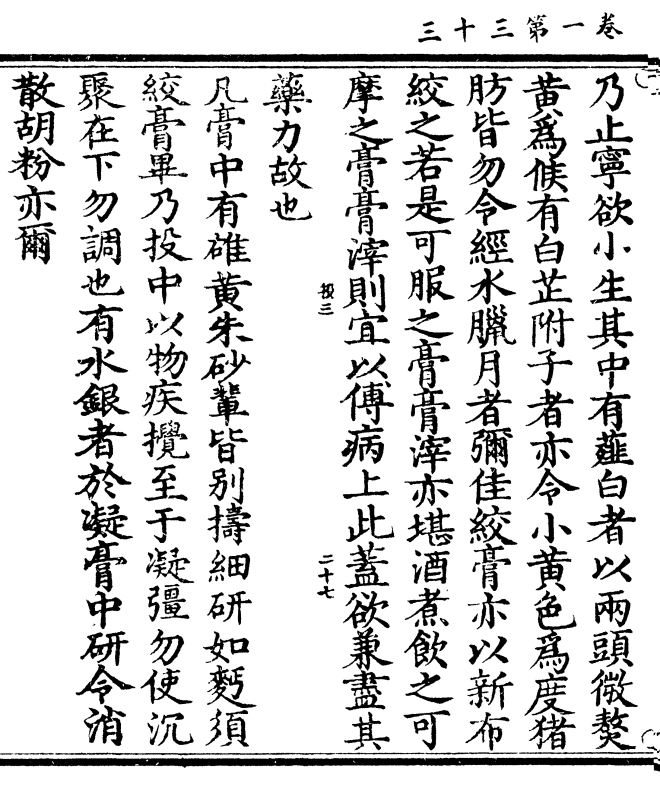 卷一第三十三
乃止寧欲小生其中有薤白者以兩頭微熬
黃爲候有白芷附子者亦令小黃色爲度猪
肪皆勿令經水臘月者彌佳絞膏亦以新布
絞之若是可服之膏膏滓亦堪酒煮飲之可
摩之膏膏滓則宜以傅病上此蓋欲兼盡其
投三
二十七
藥力故也
凡膏中有雄黃朱砂輩皆別擣細研如麪須
絞膏畢乃投中以物疾攪至于凝彊勿使沉
聚在下勿調也有水銀者於凝膏中研令消
散胡粉亦爾